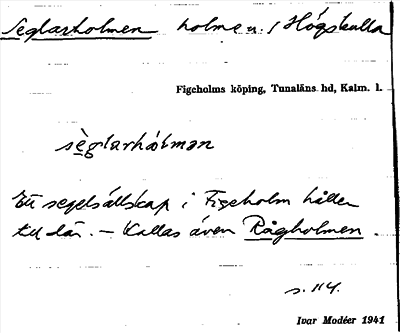 Seglarholmen holme u. / Högskulla
Figeholms köping, Tunaläns hd, Kalm. l.
sèglarhólman
Ett segelsällskap i Figeholm håller
till där. – Kallas även Rågholmen.
s. 114.
Ivar Modéer 1941